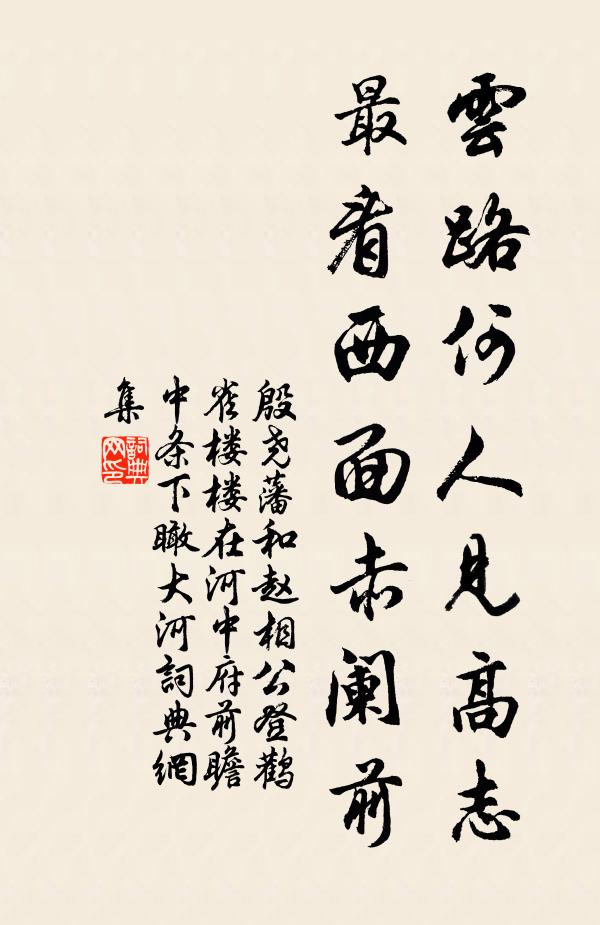 雲路何人見高志
最看西面赤阑前
殷尧藩和赵相公登鹳
雀楼楼在河中府前瞻
中条下瞰大河詞典網
集
詞典
网印